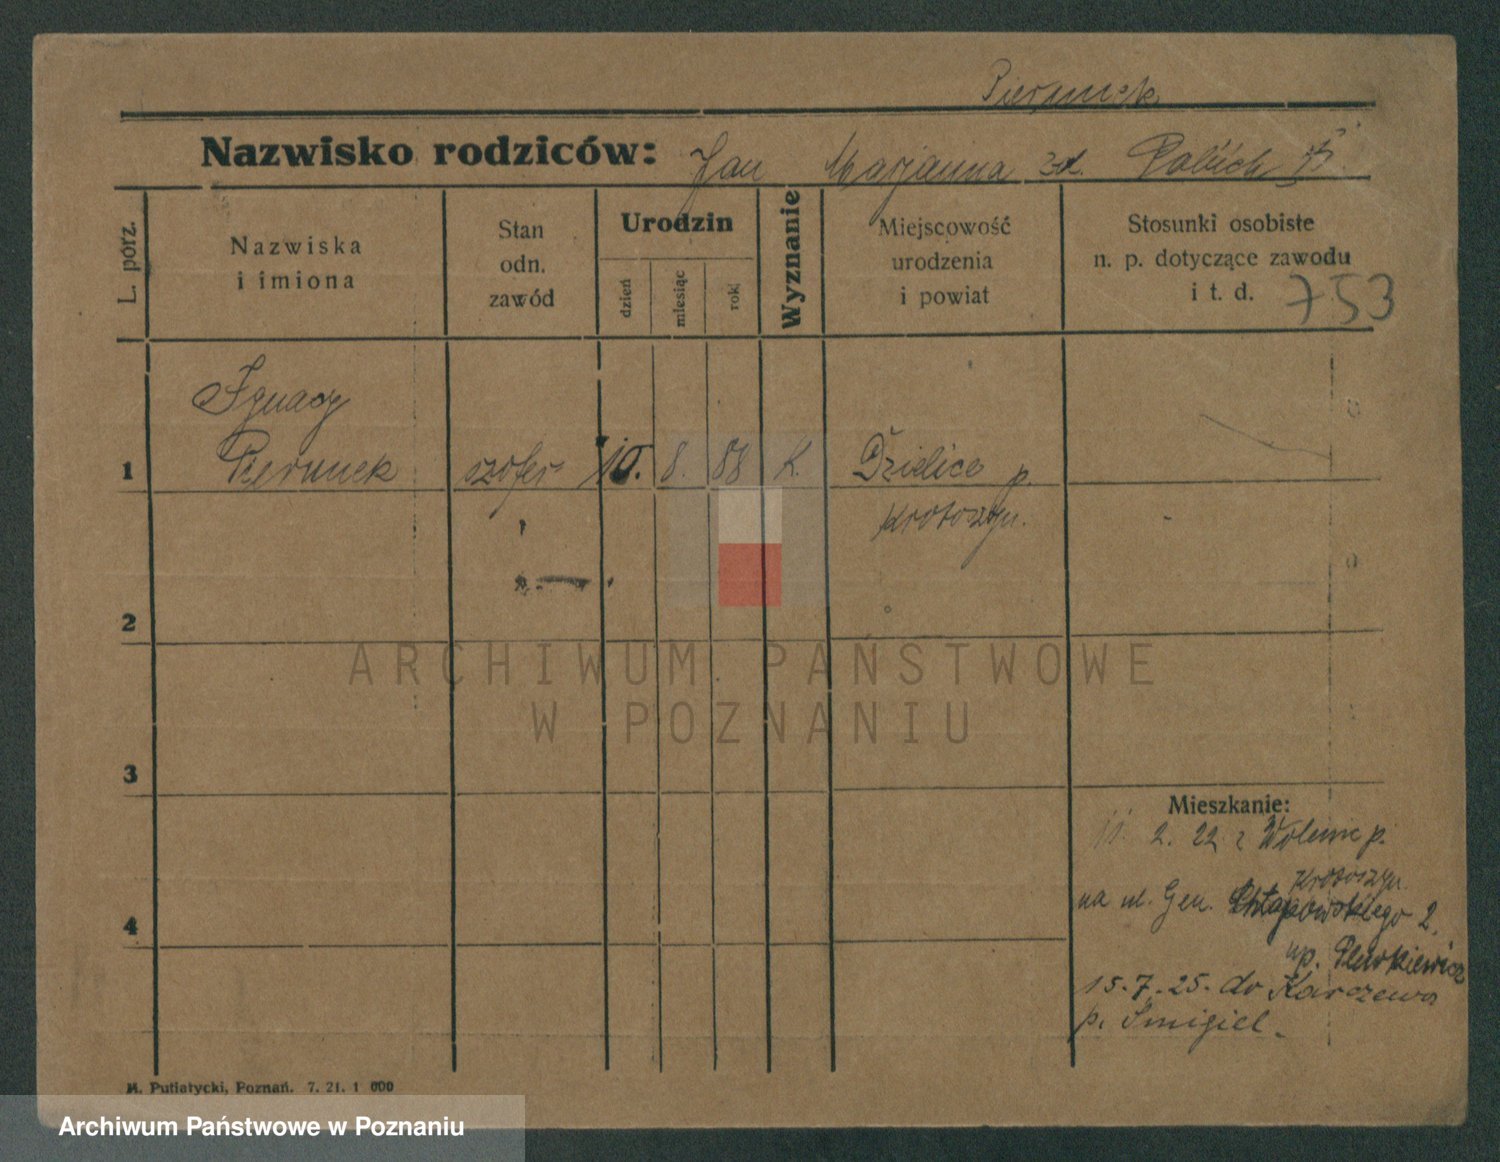 Pierunek
Nazwisko rodziców: Jan Marjanna zd.
L. porz.
Nazwiska
i imiona
Stan
odn.
zawód
Urodzin
dzień
miesiąc
rok
Wyznanie
Miejscowość
urodzenia
i powiat
Stosunki osobiste
n. p. dotyczące zawodu
i t. d.
753
Ignacy
1 Pierunek szofer 10. 8. 88 k. Dzielice p.
Krotoszyn.
2
3
4
ARCHIWUM PAŃSTWOWE
W POZNANIU
Mieszkanie:
11. 2. 22 z p.
Krotoszyn.
na ul. Gen. Chłapowskiego 2.
up.
15.7.25. do Karczewa
p. Śmigiel.
M. Putiatycki, Poznań. 7. 21. 1 000
Archiwum Państwowe w Poznaniu